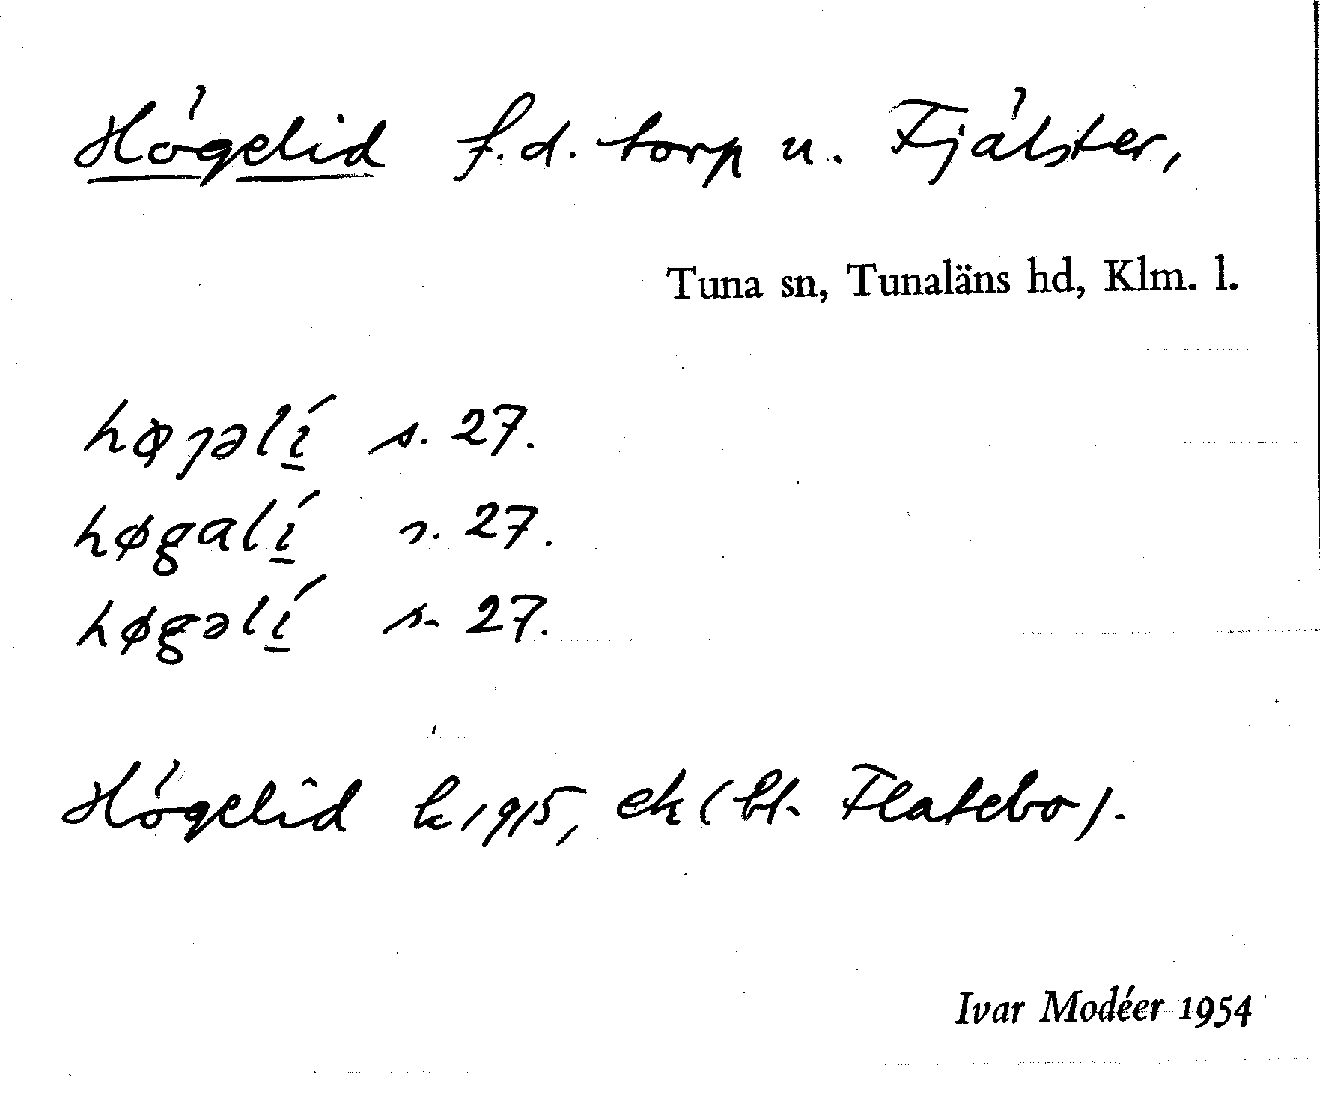 Högelid f.d. torp u. Fjälster,
Tuna sn, Tunaläns hd, Klm. l.
høȷəlí s. 27.
høgalí s. 27.
høgəlí s. 27.
Högelid k 1915, ek (bt. Flatebo).
Ivar Modéer 1954